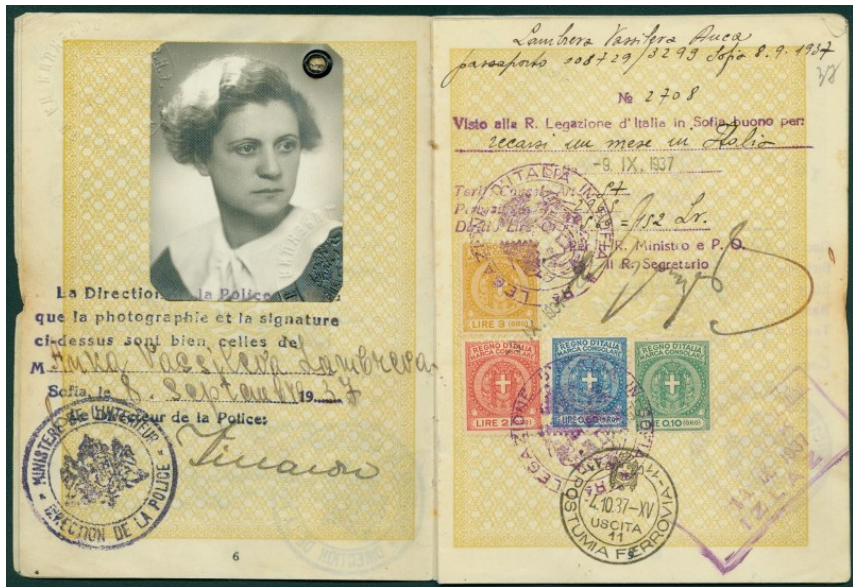 La Direction de la Police
que la photographie et la signature
ci-dessus sont bien celles de
M Anka Vassileva Lambreva
Sofia, le 8. Septembre 1937
Le Directeur de la Police:
MINISTÈRE DE L'INTÉRIEUR
DIRECTION DE LA POLICE
6
Lambreva Vassileva Anca
passaporto 108729/3299 Sofia 8.9.1937
37
No 2708
Visto alla R. Legazione d'Italia in Sofia buono per:
recarsi un mese in Italia
-9. IX. 1937
= 952 Lv.
Per il R. Ministro e P. O.
Il R. Segretario
LIRE 3 (ORO)
REGNO D'ITALIA
MARCA CONSOLARE
LIRE 2 (ORO)
REGNO D'ITALIA
MARCA CONSOLARE
LIRE 0.60 (ORO)
REGNO D'ITALIA
MARCA CONSOLARE
LIRE 0.10 (ORO)
4.10.37-XV
USCITA
11
POSTUMIA FERROVIA
1937
IZLAZ